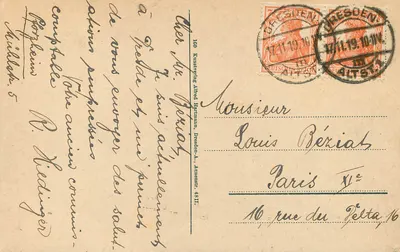 Cher Mr. Béziat,
Je suis actuellement
à Dresde et me permet
de vous envoyer des salut-
ations empressées
Votre ancien commis-
comptable
R. Hedinger
Mühlstr. 5
DRESDEN
17.11.19.10-11V.
ALTST.1
DRESDEN
17.11.19.10-11V.
ALTST.1
Monsieur
Louis Béziat
Paris XIe
16, rue du Telta 16